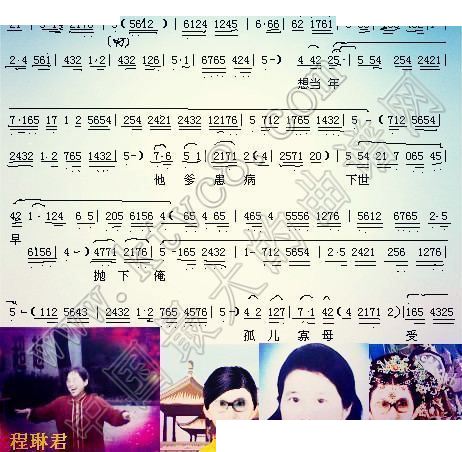 5(5612 | 6124 1245 | 6·66 62 1761 |
2·4 561 | 432 1·2 | 432 126 | 5·1 | 6765 424 | 5-) 4 42 25· | 5 54 254 2421 |
想当年
7·165 17 1 2 5654 | 254 2421 2432 12176 | 5 712 1765 1432 | 5-(712 5654 |
2432 1·2 765 1432 | 5-) 7·6 | 5 1 | 2171 2(4 | 2571 20) | 5 54 21 7 065 45 |
他爹患病 下世
42 1·124 6 5 | 205 6156 4(65 4 65 | 465 4 5556 1276 | 5612 6765 2·5
早
6156 | 4-) | 4771 2176 | 5-165 245 | 1276 5-| 712 5654 | 2·5 2421 256 1276 |
抛下俺
5-(112 5643 | 2432 1·2 765 4576 | 5-) 4 2 127 | 7·1 42 (4 2171 2) | 165 4325
孤儿寡母 受
www.ktvc8.com
中国最大的曲谱网
程琳君